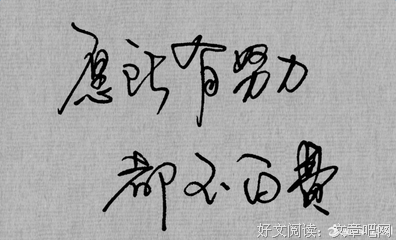 愿所有努力
都不白费
好文阅读：文章吧网